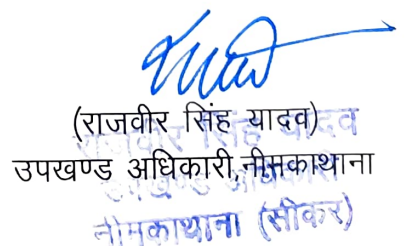 (राजवीर सिंह यादव)
उपखण्ड अधिकारी,नीमकाथाना
राजवीर सिंह यादव
उपखण्ड अधिकारी
नीमकाथाना (सीकर)